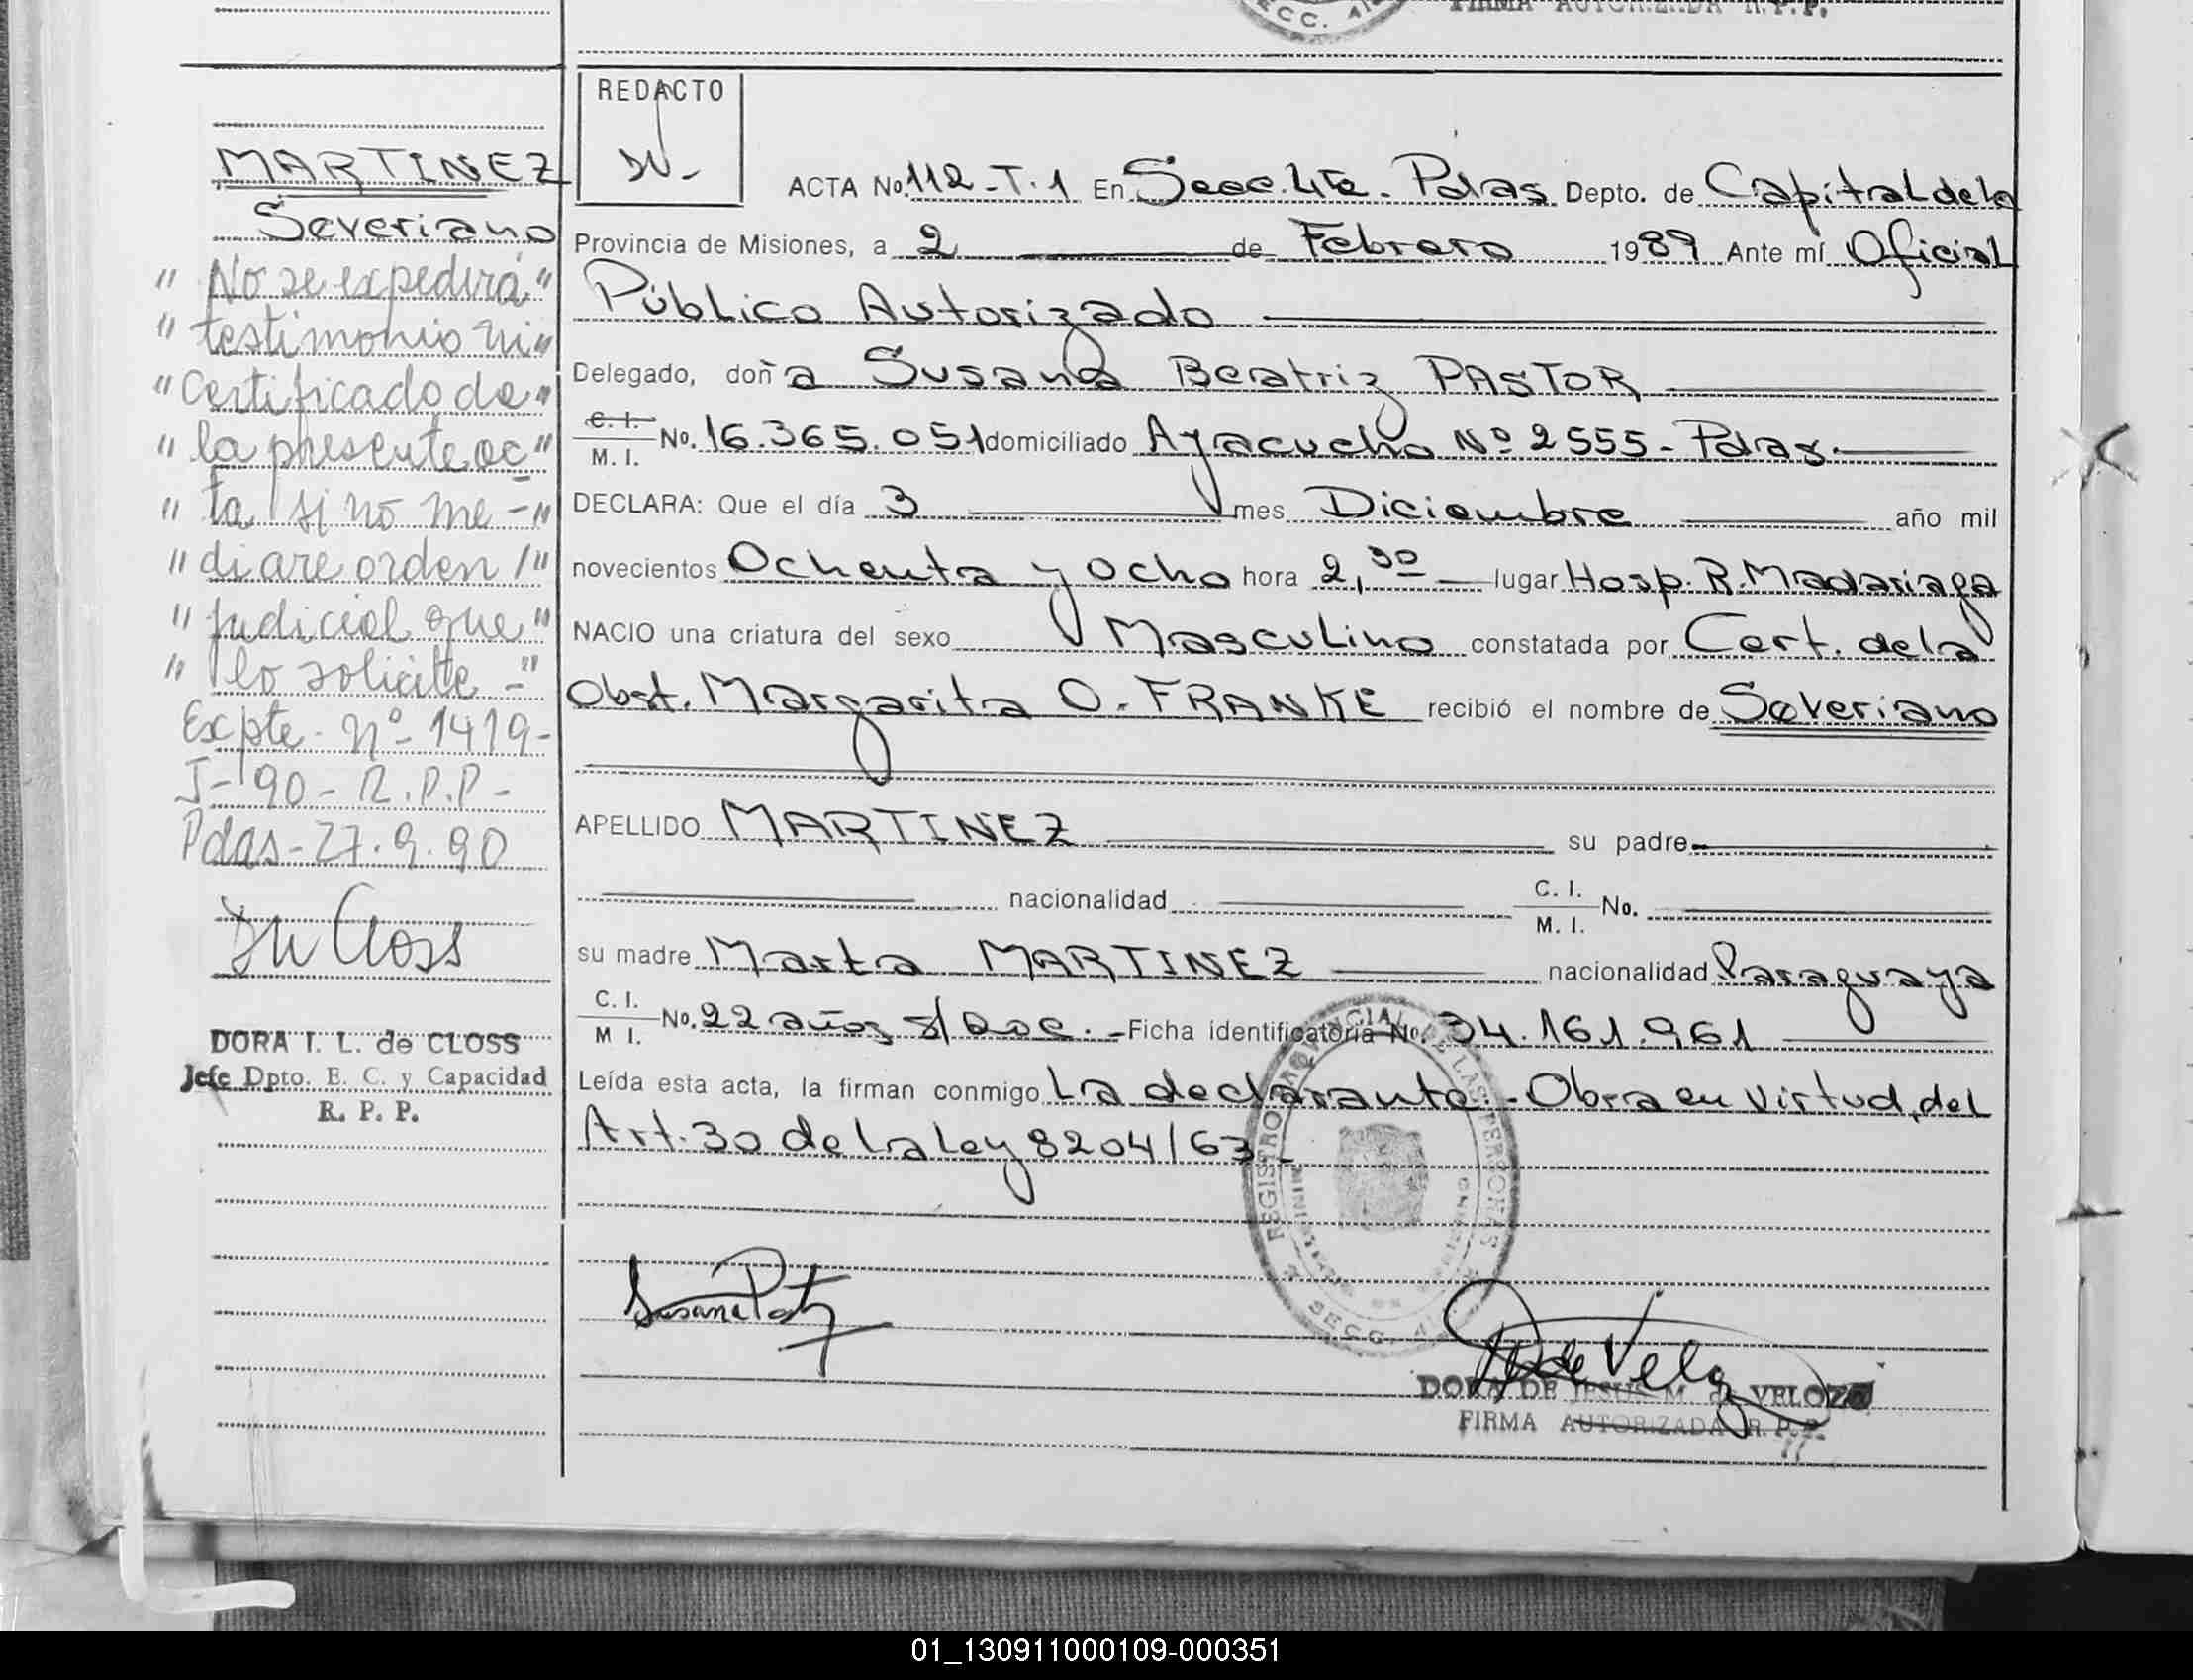 SECC. A
FIRMA AUTORIZADA R.P.P.
MARTINEZ
Severiano
" No se expedirá "
" testimonio ni "
" Certificado de "
" la presente ac "
" ta si no me - "
" diare orden / "
" judicial que "
" lo solicite - "
Expte. nº 1419-
J-90- R.P.P-
Pdas-27.9.90
DORA I. L. de CLOSS
Jefe Dpto. E. C. y Capacidad
R. P. P.
REDACTO
ACTA No. 112-T.1 En Secc. 4ta. Pdas Depto. de Capital de la
Provincia de Misiones, a 2 de Febrero 1989 Ante mí Oficial
Público Autorizado
Delegado, doña Susana Beatriz PASTOR
C. I.
M. I. No. 16.365.051 domiciliado Ayacucho Nº 2555- Pdas.
DECLARA: Que el día 3 mes Diciembre año mil
novecientos Ochenta y ocho hora 2,30 lugar Hosp. R. Madariaga
NACIO una criatura del sexo Masculino constatada por Cert. de la
Obst. Margarita O. FRANKE recibió el nombre de Severiano
APELLIDO MARTINEZ su padre
nacionalidad C. I.
M. I. No.
su madre Marta MARTINEZ nacionalidad Paraguaya
C. I.
M I. No. 22 años s/Doc. - Ficha identificatoria No. 34.161.961
Leída esta acta, la firman conmigo La declarante.- Obra en virtud, del
Art. 30 de la Ley 8204/63-
REGISTRO PROVINCIAL DE LAS PERSONAS
SECC. 4
DORA DE JESUS M. de VELOZO
FIRMA AUTORIZADA R. P. P.
01_130911000109-000351